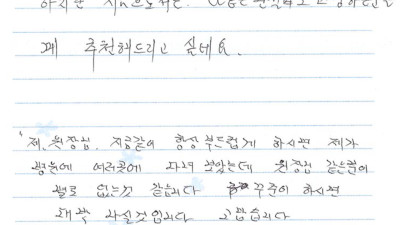 하지만 지금으로서는.
께 추천해드리고 싶네요.
"제. 원장님. 지금같이 항상 부드럽게 하시면 제가
병원에 여러곳에 다녀 보았는데 원장님 같은분이
별로 없는것 같습니다 꾸준이 하시면
대박 나실것입니다 고맙습니다